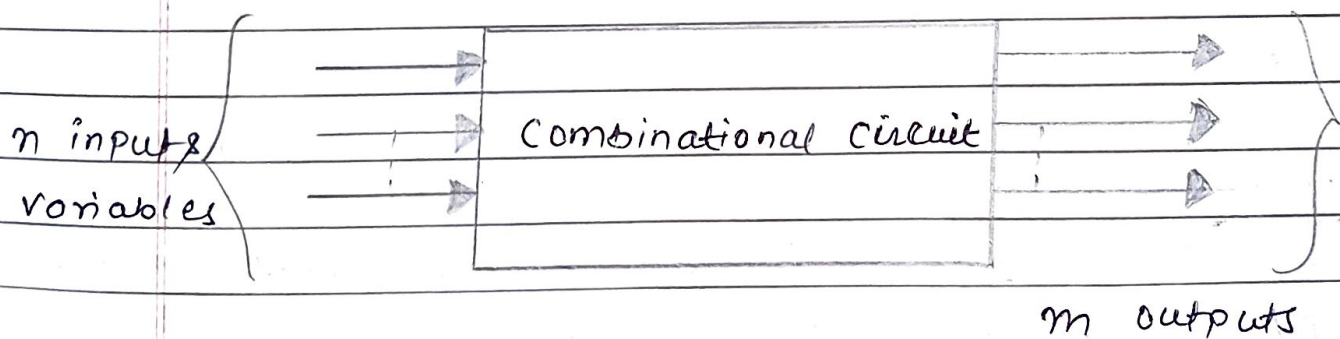 n inputs
variables
Combinational circuit
m outputs